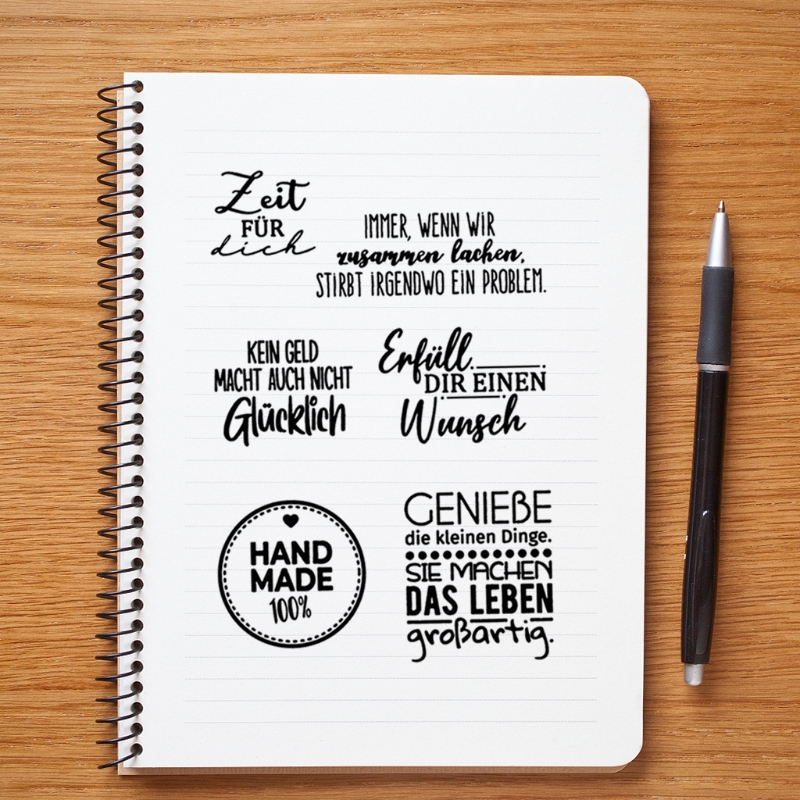 Zeit
FÜR
dich
IMMER, WENN WIR
zusammen lachen,
STIRBT IRGENDWO EIN PROBLEM.
KEIN GELD
MACHT AUCH NICHT
Glücklich
Erfüll
DIR EINEN
Wunsch
HAND
MADE
100%
GENIEßE
die kleinen Dinge.
SIE MACHEN
DAS LEBEN
großartig.